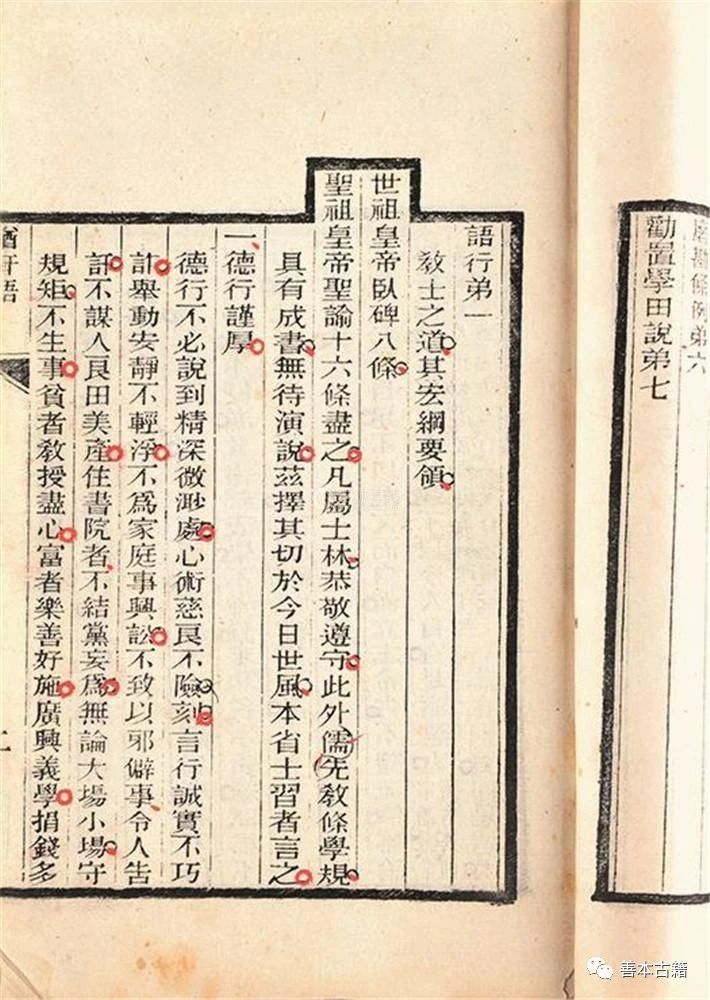 磨勘條例弟六
勸置學田說弟七
語行弟一
教士之道其宏綱要領
世祖皇帝臥碑八條
聖祖皇帝聖諭十六條盡之凡屬士林恭敬遵守此外儒先教條學規
具有成書無待演說茲擇其切於今日世風本省士習者言之
一德行謹厚
德行不必說到精深微渺處心術慈良不險刻言行誠實不巧
計舉動安靜不輕浮不爲家庭事興訟不致以邪僻事令人告
訐不謀人良田美產住書院者不結黨妄爲無論大場小場守
規矩不生事貧者教授盡心富者樂善好施廣興義學捐錢多
軒語
善本古籍